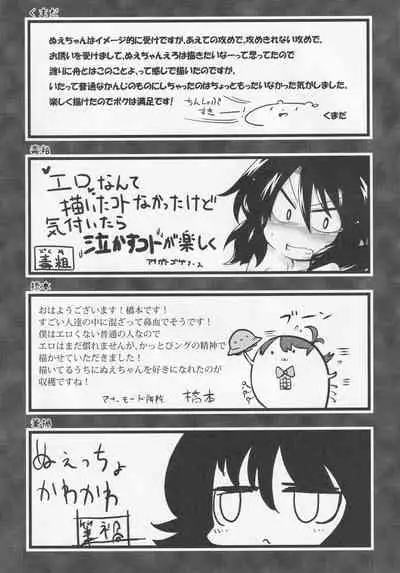 くまだ
ぬえちゃんはイメージ的に受けですが、あえての攻めで、攻めきれない攻めで、
お誘いを受けまして、ぬえちゃんえろは描きたいなーって思ってたので
渡りに舟とはこのことよ、って感じで描いたのですが、
いたって普通なかんじのものにしちゃったのはちょっともったいなかった気がしました。
楽しく描けたのでボクは満足です!
くまだ
毒粗
エロなんて
描いたコトなかったけど
気付いたら
泣かすコトが楽しく
どくそ
毒粗
橋本
おはようございます!橋本です!
すごい人達の中に混ざって鼻血でそうです!
僕はエロくない普通の人なので
エロはまだ慣れませんが、かっとびングの精神で
描かせていただきました!
描いてるうちにぬえちゃんを好きになれたのが
収穫ですね!
橋本
ブーン
ぬえっちょ
かわかわ